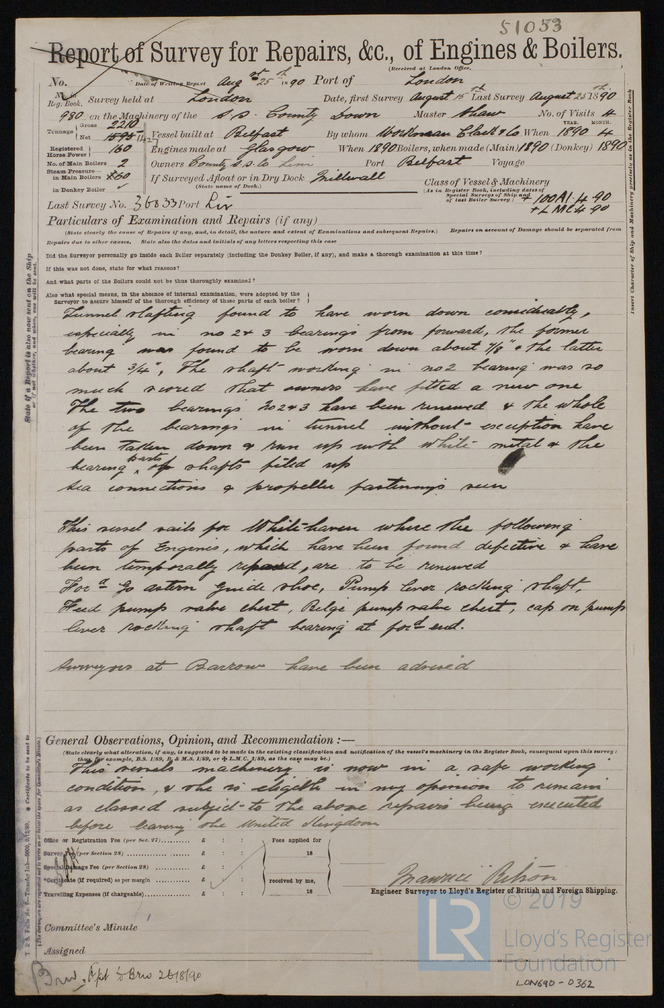 51053
Report of Survey for Repairs, &c., of Engines & Boilers.
(Received at London Office,
No. Date of Writing Report Augst 25th 1890 Port of London
No. in Reg. Book. Survey held at London Date, first Survey August 15th Last Survey August 25th 1890
980 on the Machinery of the S.S. County Down Master Shaw No. of Visits 4
Tonnage Gross 2210 Net Vessel built at Belfast By whom Workman Clark & Co When 1890 4
YEAR. MONTH.
Registered Horse Power 160 Engines made at Glasgow When 1890 Boilers, when made (Main) 1890 (Donkey) 1890
No. of Main Boilers 2 Owners County S.S. Co Lim Port Belfast Voyage
Steam Pressure in Main Boilers 160 If Surveyed Afloat or in Dry Dock Millwall
in Donkey Boiler (State name of Dock.)
Class of Vessel & Machinery
(As in Register Book, including dates of Special Surveys of Ship and of last Boiler Survey.)
+ 100A1 4.90
+ LMC 4.90
Last Survey No. Port Liv
Particulars of Examination and Repairs (if any)
(State clearly the cause of Repairs if any, and, in detail, the nature and extent of Examinations and subsequent Repairs.) Repairs on account of Damage should be separated from
Repairs due to other causes. State also the dates and initials of any letters respecting this case
Did the Surveyor personally go inside each Boiler separately (including the Donkey Boiler, if any), and make a thorough examination at this time?
If this was not done, state for what reasons?
And what parts of the Boilers could not be thus thoroughly examined?
Also what special means, in the absence of internal examination, were adopted by the
Surveyor to assure himself of the thorough efficiency of those parts of each boiler?
Tunnel shafting found to have worn down considerably,
especially in no 2 & 3 bearings from forward, the former
bearing was found to be worn down about 7/8" & the latter
about 3/4", The shaft working in no2 bearing was so
much scored that owners have fitted a new one
The two bearings No 2&3 have been renewed & the whole
of the bearings in tunnel without exception have
been taken down & run up with white metal & the
bearing parts of shafts filed up
Sea connections & propeller fastenings seen
This vessel sails for Whitehaven where the following
parts of Engines, which have been found defective & have
been temporally repaired, are to be renewed
Ford go astern guide shoe, Pump lever rocking shaft,
Feed pump valve chest, Bilge pump valve chest, cap on pump
lever rocking shaft bearing at ford end.
Surveyors at Barrow have been advised
General Observations, Opinion, and Recommendation :—
(State clearly what alteration, if any, is suggested to be made in the existing classification and notification of the vessel's machinery in the Register Book, consequent upon this survey:
thus, for example, B.S. 1/89, B. & M.S. 1/89, or L.M.C. 1/89, as the case may be.)
This vessels machinery is now in a safe working
condition, & she is eligible in my opinion to remain
as classed subject to the above repairs being executed
before leaving the United Kingdom
Office or Registration Fee (per Sec. 27) £ : : Fees applied for
Survey Fee (per Section 28) £ : : 18
Special Damage Fee (per Section 28) £ : :
*Certificate (if required) as per margin £ : : received by me,
Travelling Expenses (if chargeable) £ : : 18
Maurice Wilson
Engineer Surveyor to Lloyd's Register of British and Foreign Shipping.
Committee's Minute
Assigned
Brw. Rpt to Brw 26/8/90
© 2019
LR
Lloyd's Register
Foundation
LON690-0362
State if a Report is also now sent on the Ship
Insert Character of Ship and Machinery precisely as in the Register Book